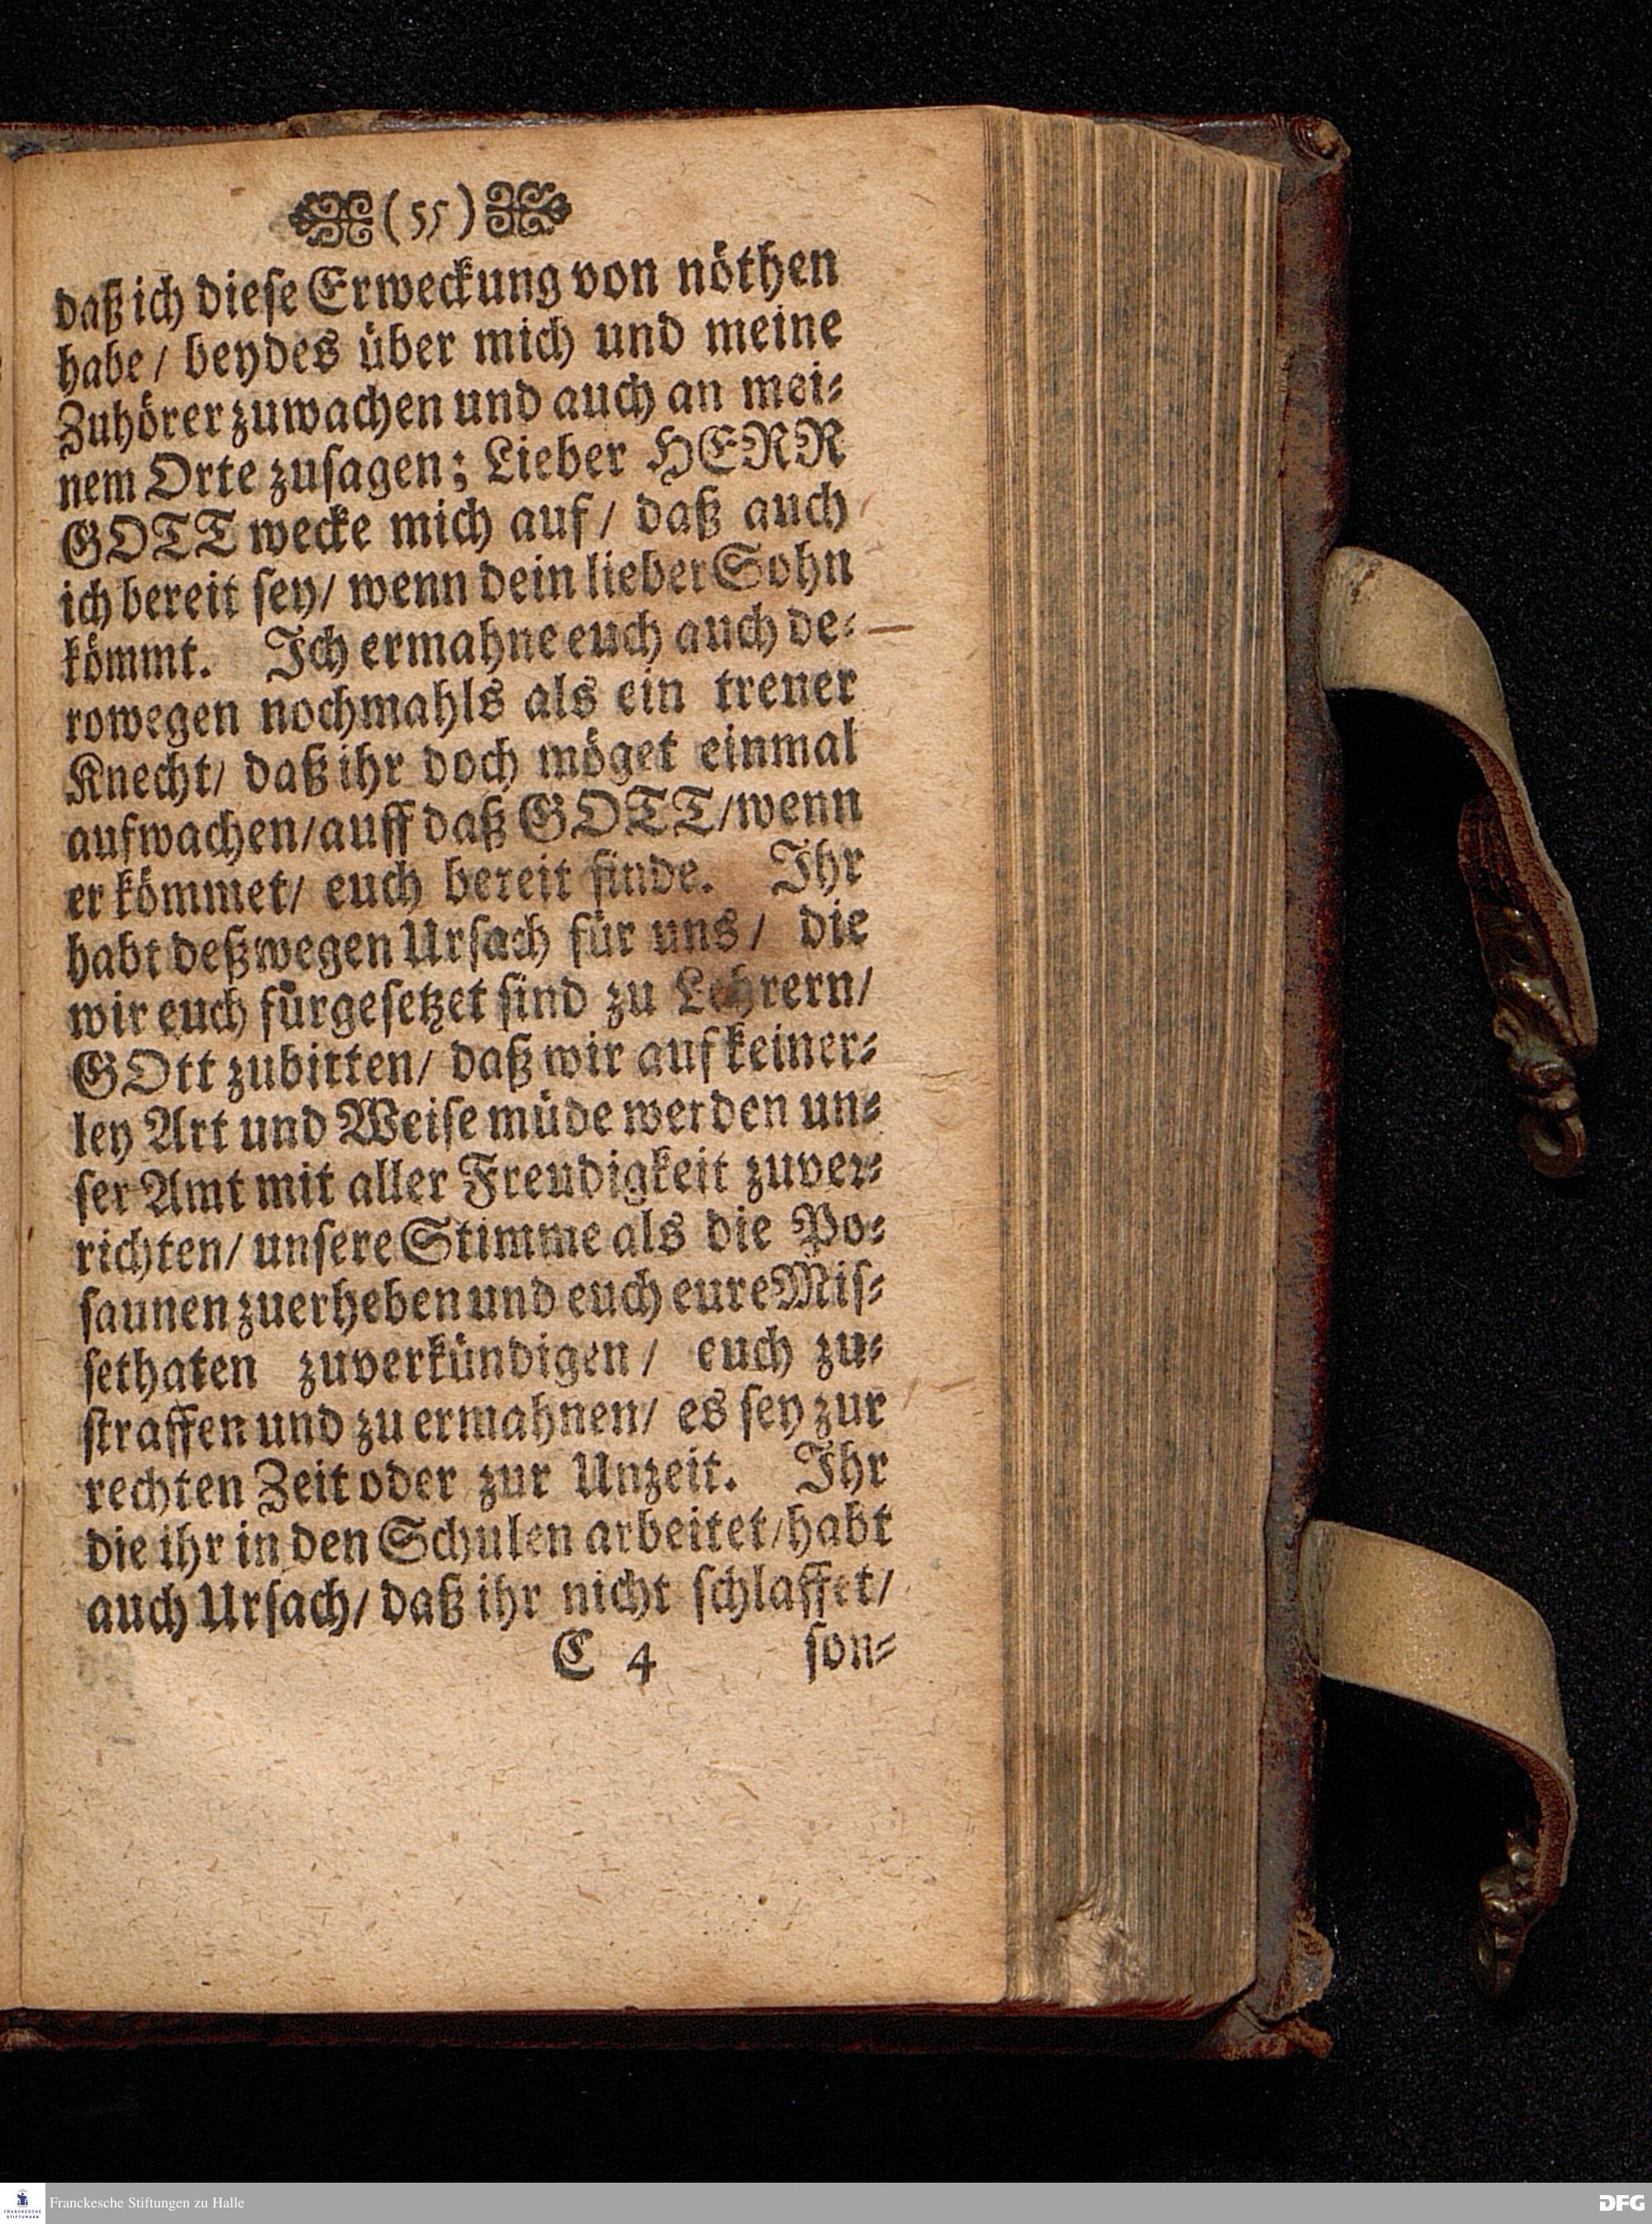 (55)
daß ich diese Erweckung von nöthen
habe/ beydes über mich und meine
Zuhörer zuwachen und auch an mei⸗
nem Orte zusagen; Lieber HERR
GOTT wecke mich auf/ daß auch
ich bereit sey/ wenn dein lieber Sohn
kömmt. Ich ermahne euch auch de⸗
rowegen nochmahls als ein treuer
Knecht/ daß ihr doch möget einmal
aufwachen/auff daß GOTT/wenn
er kömmet/ euch bereit finde. Ihr
habt deßwegen Ursach für uns/ die
wir euch fürgesetzet sind zu Lehrern/
GOtt zubitten/ daß wir auf keiner⸗
ley Art und Weise müde werden un⸗
ser Amt mit aller Freudigkeit zuver⸗
richten/ unsere Stimme als die Po⸗
saunen zuerheben und euch eure Mis⸗
sethaten zuverkündigen/ euch zu⸗
straffen und zu ermahnen/ es sey zur
rechten Zeit oder zur Unzeit. Ihr
die ihr in den Schulen arbeitet/habt
auch Ursach/ daß ihr nicht schlaffet/
C 4 son⸗
FRANCKESCHE STIFTUNGEN
Franckesche Stiftungen zu Halle
DFG